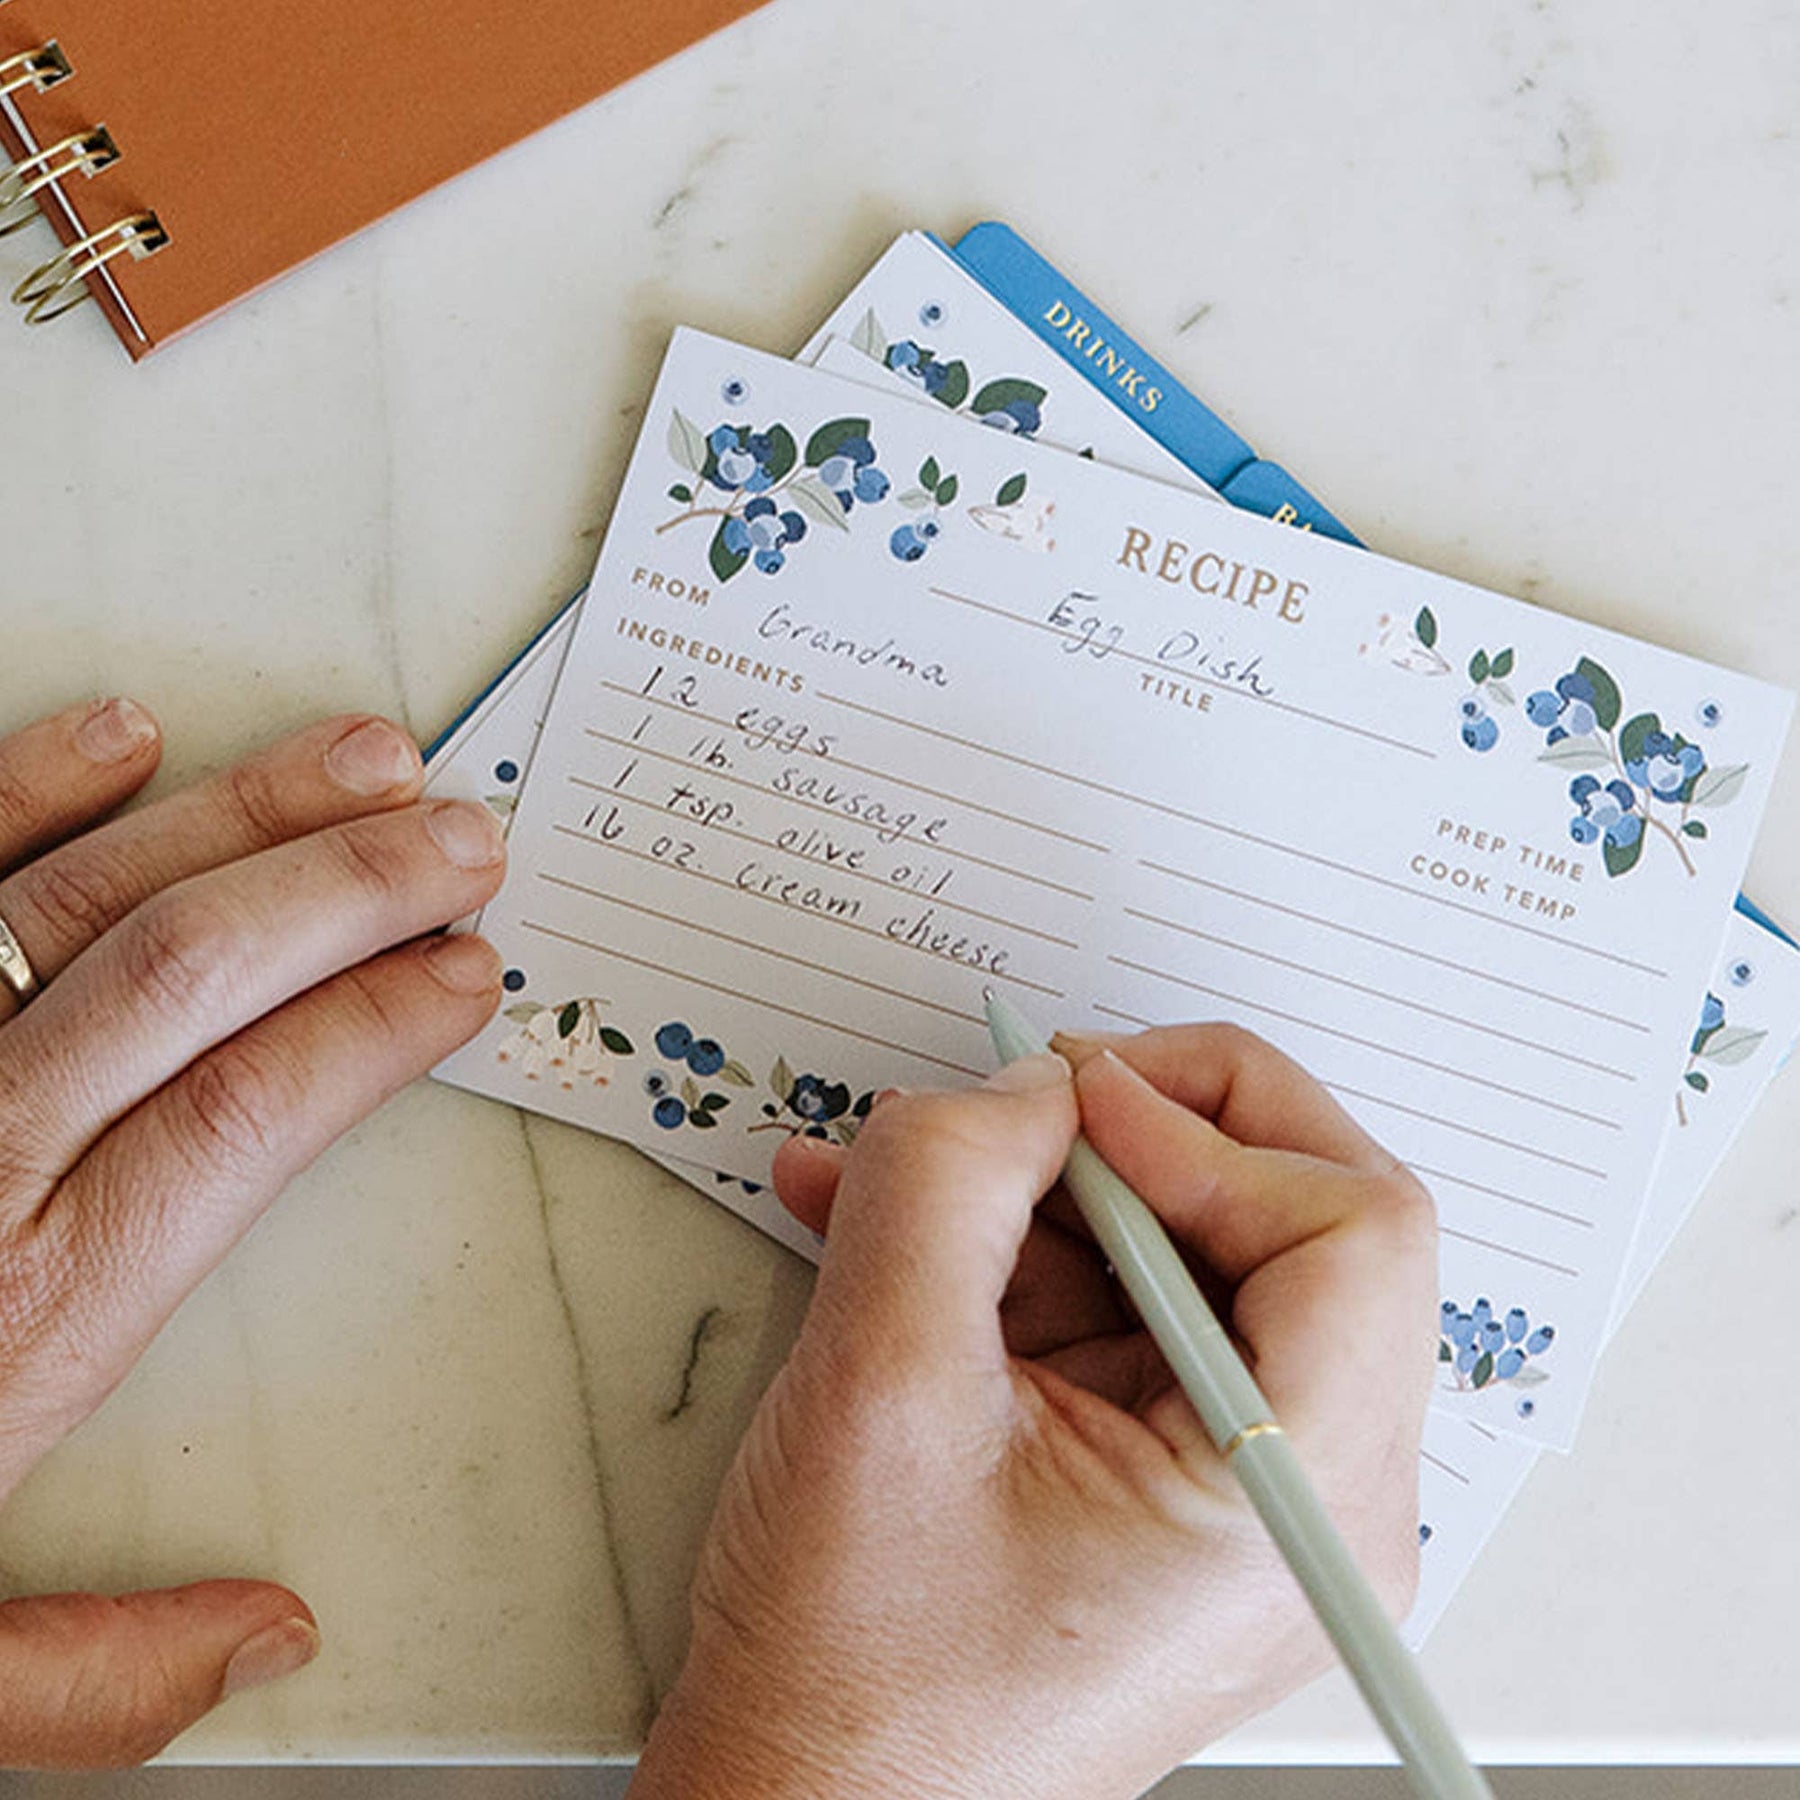 DRINKS
BA
RECIPE
Egg Dish
TITLE
FROM Grandma
INGREDIENTS
12 eggs
1 lb. sausage
1 tsp. olive oil
16 oz. cream cheese
PREP TIME
COOK TEMP